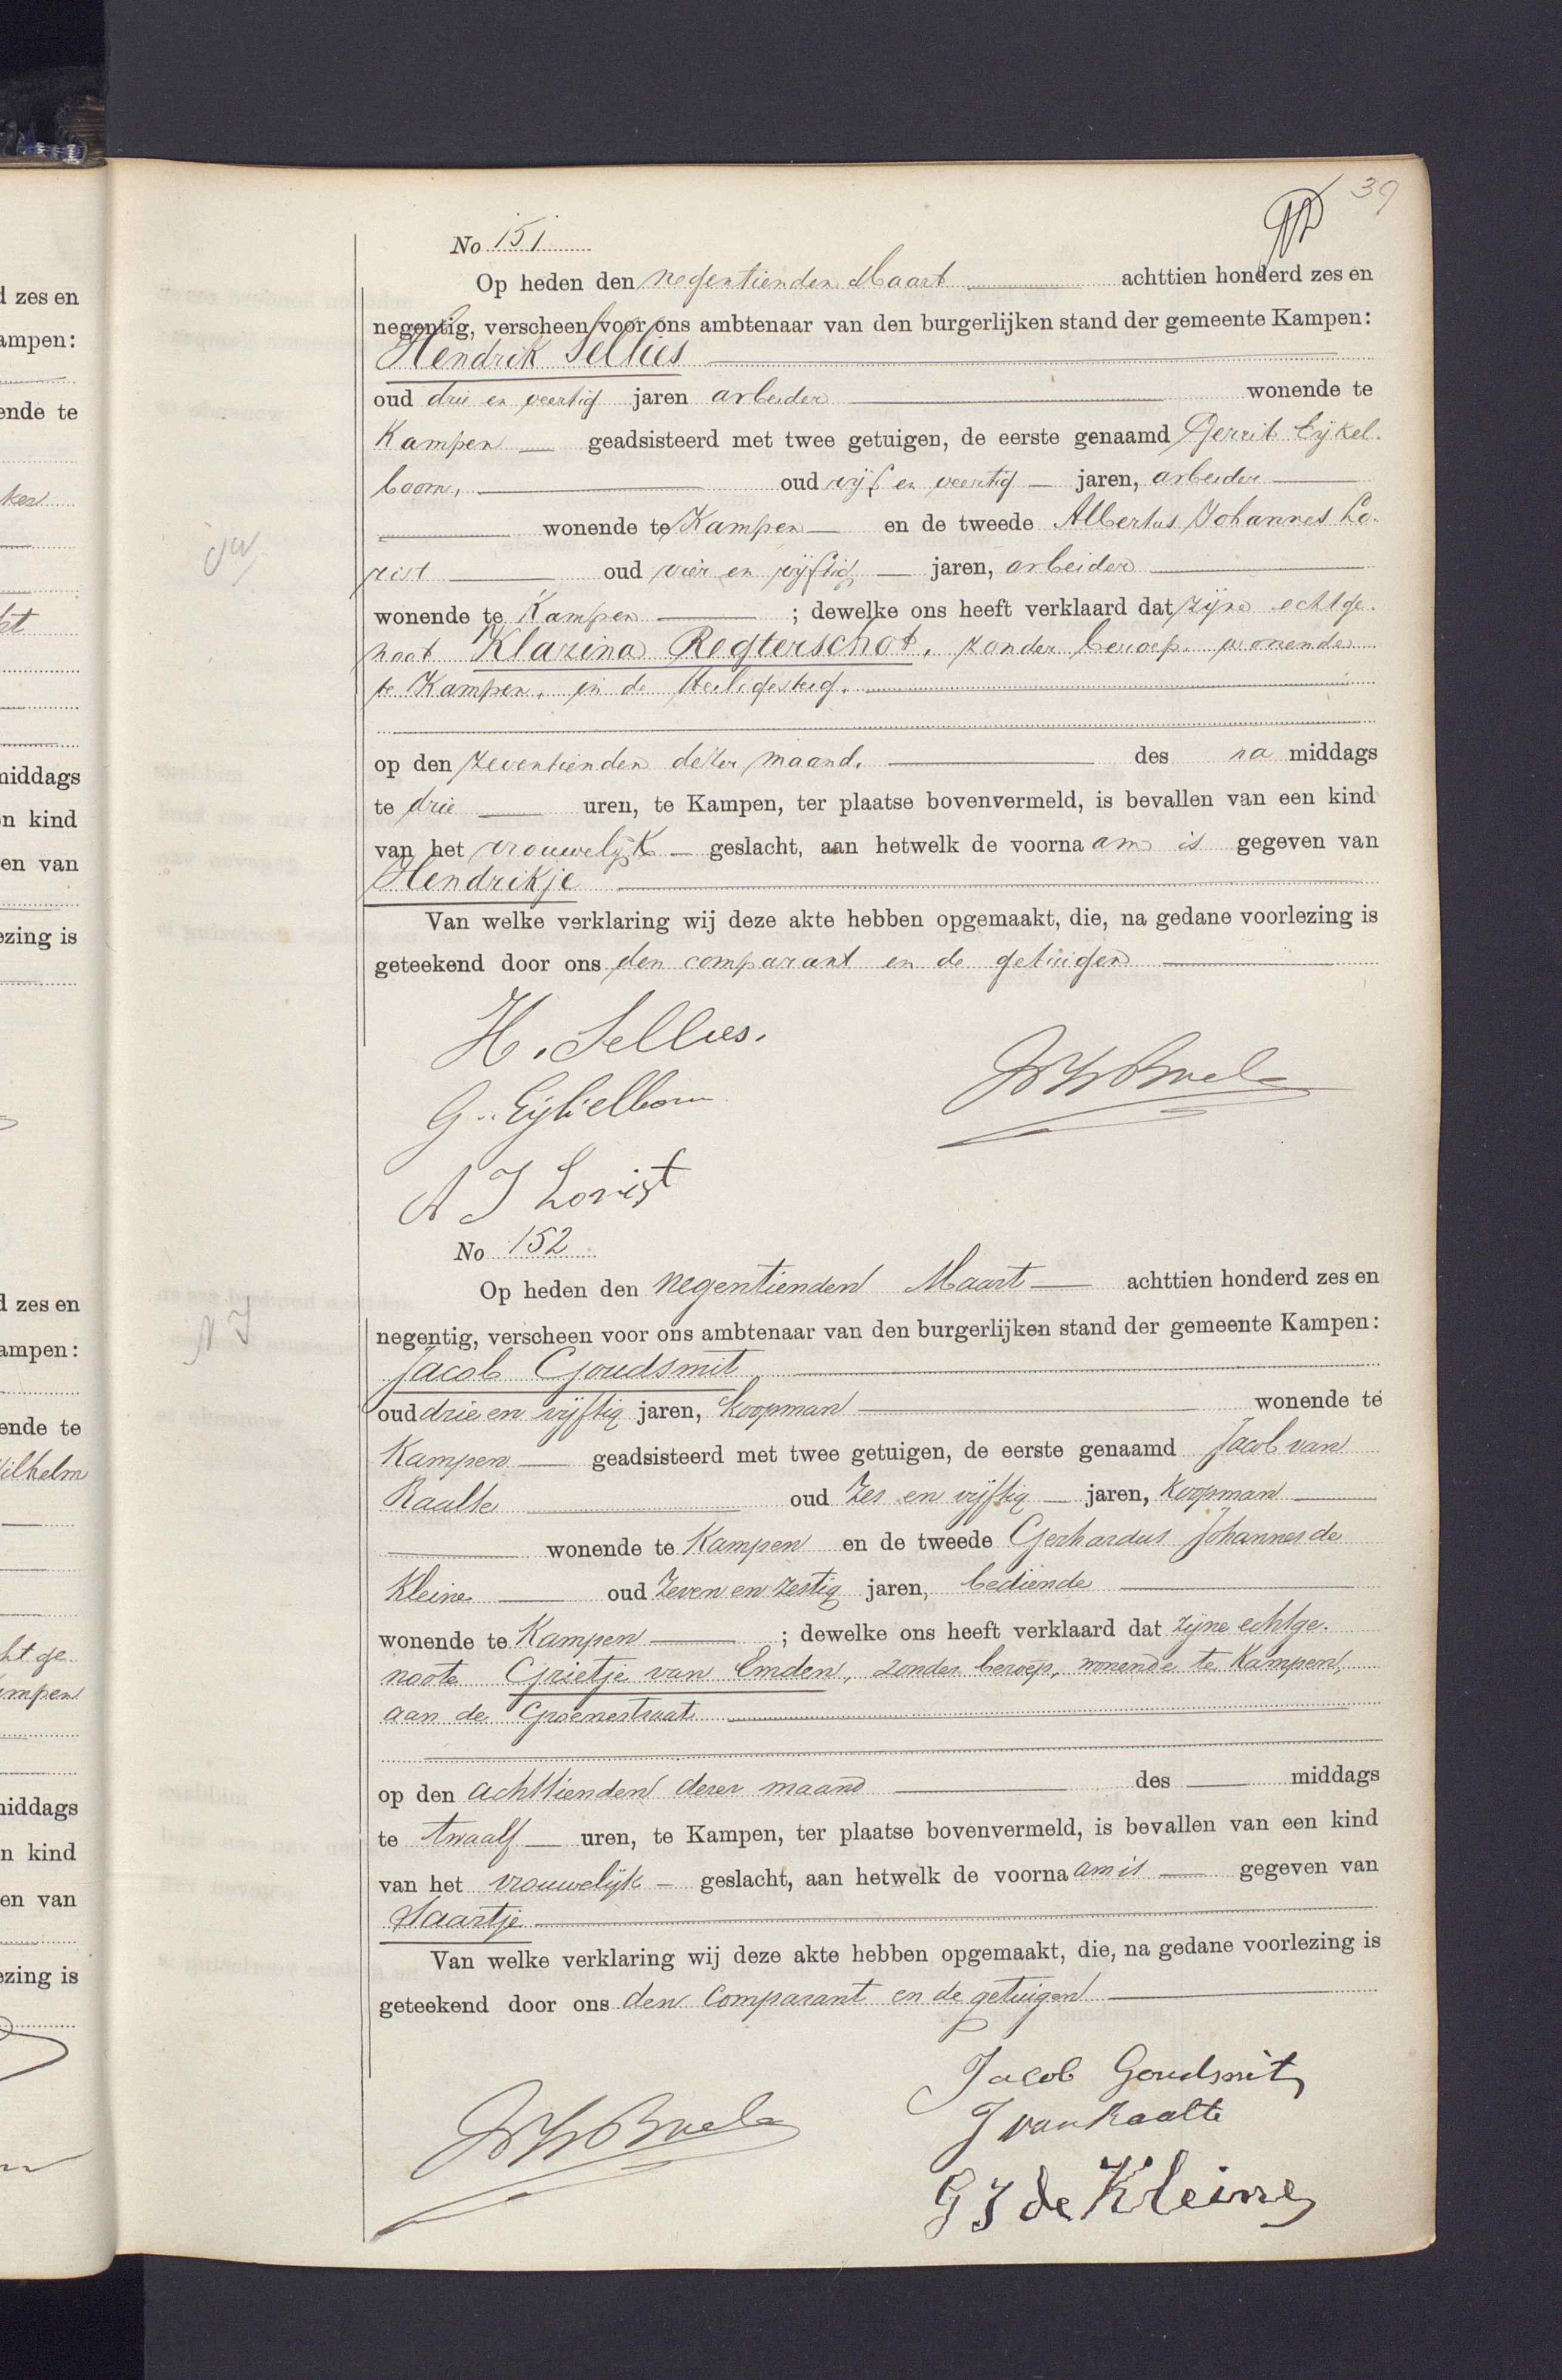 39
No 151
Op heden den negentienden Maart achttien honderd zes en
negentig, verscheen voor ons ambtenaar van den burgerlijken stand der gemeente Kampen:
Hendrik Sellies
oud drie en veertig jaren arbeider wonende te
Kampen geadsisteerd met twee getuigen, de eerste genaamd Gerrit Eijkel-
boom, oud vijf en veertig jaren, arbeider
wonende te Kampen en de tweede Albertus Johannes Lo-
rist oud vier en vijftig jaren, arbeider
wonende te Kampen ; dewelke ons heeft verklaard dat zijne echtge-
noot Klazina Regterschot, zonder beroep wonende
te Kampen, in de Heiligesteeg.
op den zeventienden dezer maand. des na middags
te drie uren, te Kampen, ter plaatse bovenvermeld, is bevallen van een kind
van het vrouwelijk geslacht, aan hetwelk de voorna am is gegeven van
Hendrikje
Van welke verklaring wij deze akte hebben opgemaakt, die, na gedane voorlezing is
geteekend door ons den comparant en de getuigen
H. Sellies.
G. Eijkelboom
A J Lorist
No 152
Op heden den negentienden Maart achttien honderd zes en
negentig, verscheen voor ons ambtenaar van den burgerlijken stand der gemeente Kampen:
N I
Jacob Goudsmit
oud drie en vijftig jaren, koopman wonende te
Kampen geadsisteerd met twee getuigen, de eerste genaamd Jacob van
Raalte oud zes en vijftig jaren, koopman
wonende te Kampen en de tweede Gerhardus Johannes de
Kleine oud zeven en zestig jaren, bediende
wonende te Kampen ; dewelke ons heeft verklaard dat zijne echtge-
noote Grietje van Emden, zonder beroep, wonende te Kampen,
aan de Groenestraat
op den achttienden dezer maand des middags
te twaalf uren, te Kampen, ter plaatse bovenvermeld, is bevallen van een kind
van het vrouwelijk geslacht, aan hetwelk de voorna am is gegeven van
Saartje
Van welke verklaring wij deze akte hebben opgemaakt, die, na gedane voorlezing is
geteekend door ons den comparant en de getuigen
Jacob Goudsmit
J van Raalte
G J de Kleine